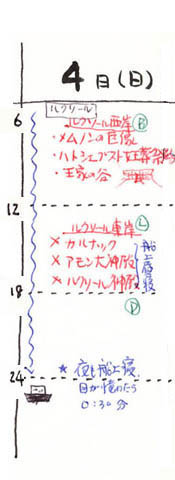 4日(日)
ルクソール
6
ルクソール西岸 Ⓑ
・メムノンの巨像
・ハトシェプスト女王葬祭殿
・王家の谷
12
ルクソール東岸 Ⓛ
× カルナック
× アモン大神殿
× ルクソール神殿
18
Ⓓ
24
★ 夜も船上寝
0:30分